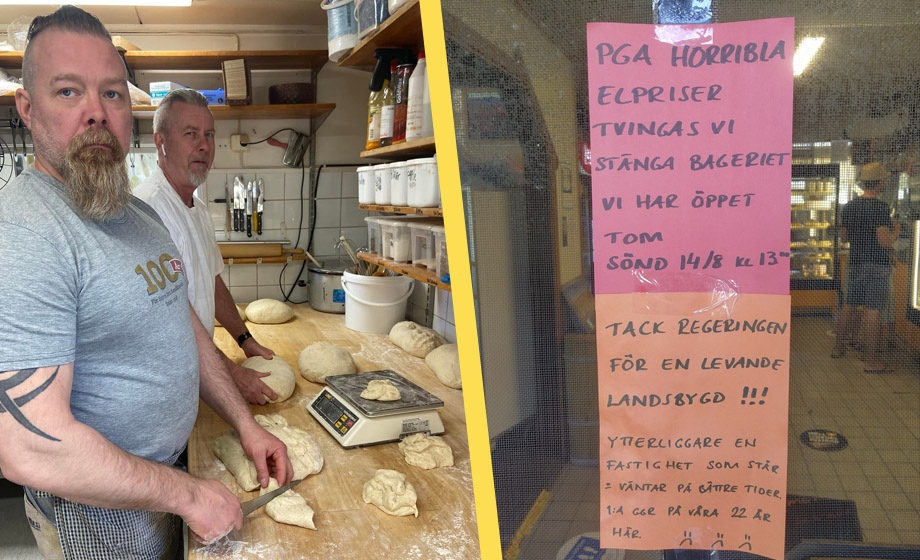 100
PGA HORRIBLA
ELPRISER
TVINGAS VI
STÄNGA BAGERIET
VI HAR ÖPPET
TOM
SÖND 14/8 KL 13⁰⁰
TACK REGERINGEN
FÖR EN LEVANDE
LANDSBYGD !!!
YTTERLIGGARE EN
FASTIGHET SOM STÅR
= VÄNTAR PÅ BÄTTRE TIDER.
1:A GGR PÅ VÅRA 22 ÅR
HÄR.